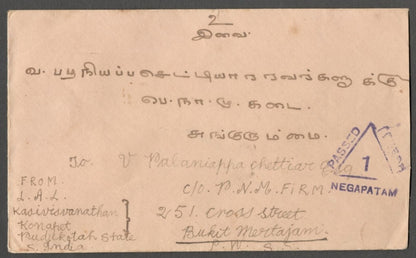 உ
இவை
வ. பழநியப்பசெட்டியாரவர்களுக்கு
பெ. நா. மு. கடை.
சுங்குரும்மை.
To. V Palaniappa chettiar Esq
C/o. P.N.M. FIRM.
251. Cross Street
Bukit Mertajam.
P.W. S.S.
FROM
L.A.L.
Kasivisvanathan
Konapet
Pudukotah State
S. India
PASSED
1
NEGAPATAM